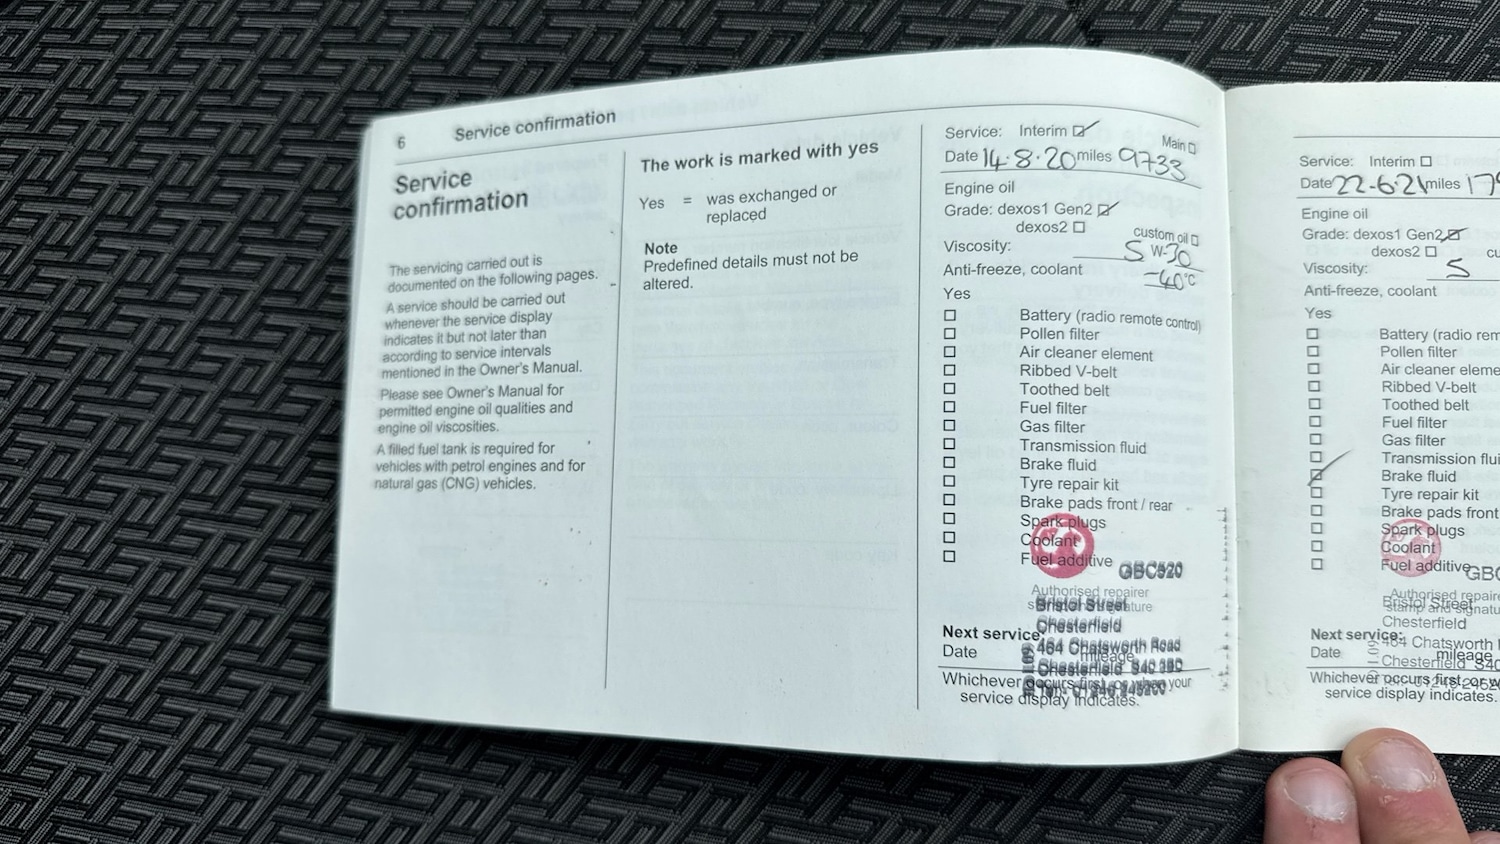 6 Service confirmation
Service
confirmation
The servicing carried out is
documented on the following pages.
A service should be carried out
whenever the service display
indicates it but not later than
according to service intervals
mentioned in the Owner's Manual.
Please see Owner's Manual for
permitted engine oil qualities and
engine oil viscosities.
A filled fuel tank is required for
vehicles with petrol engines and for
natural gas (CNG) vehicles.
The work is marked with yes
Yes = was exchanged or
replaced
Note
Predefined details must not be
altered.
Service: Interim Main
Date 14.8.20 miles 9733
Engine oil
Grade: dexos1 Gen2
dexos2 custom oil
Viscosity: 5 W-30
Anti-freeze, coolant -40°C
Yes
Battery (radio remote control)
Pollen filter
Air cleaner element
Ribbed V-belt
Toothed belt
Fuel filter
Gas filter
Transmission fluid
Brake fluid
Tyre repair kit
Brake pads front / rear
Spark plugs
Coolant
Fuel additive
GBC520
Authorised repairer
Bristol Street
Chesterfield
Next service:
464 Chatsworth Road
Date mileage
Chesterfield S40
Whichever occurs first, or when your
service display indicates.
Service: Interim
Date 22-6-21 miles 179
Engine oil
Grade: dexos1 Gen2
dexos2 cu
Viscosity: 5
Anti-freeze, coolant
Yes
Battery (radio rem
Pollen filter
Air cleaner eleme
Ribbed V-belt
Toothed belt
Fuel filter
Gas filter
Transmission flui
Brake fluid
Tyre repair kit
Brake pads front
Spark plugs
Coolant
Fuel additive
GBC
Authorised repaire
Bristol Street
stamp and signatu
Chesterfield
Next service:
464 Chatsworth
Date mileage
Chesterfield S40
Whichever occurs first, or w
service display indicates.